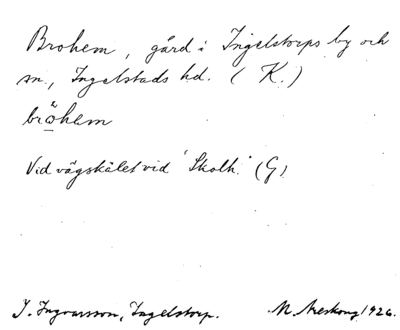 Brohem, gård i Ingelstorps by och
sn., Ingelstads hd. (K.)
bròhem
Vid vägskälet vid 'Skolh.' (G)
I. Ingvarsson, Ingelstorp. M. Areskoug 1926.